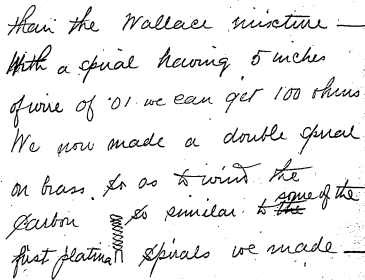 than the Wallace mixture —
With a spiral having 5 inches
of wire of .01 we can get 100 ohms
We now made a double spiral
on brass. So as to wind the
Carbon so similar to the some of the
first platina spirals we made —